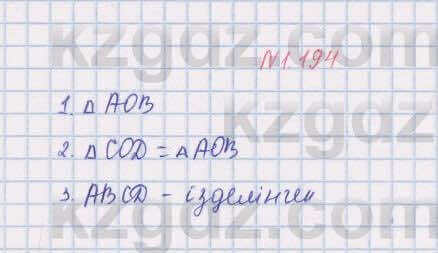 kzgdz.com
№1.194
kzgdz.com
1. △ AOB
2. △ COD = △ AOB
3. ABCD - ізделінген
kzgdz.com